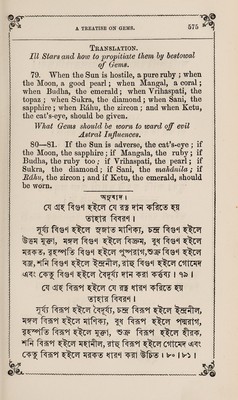 A TREATISE ON GEMS. 575
TRANSLATION.
Ill Stars and how to propitiate them by bestowal
of Gems.
79. When the Sun is hostile, a pure ruby ; when
the Moon, a good pearl ; when Mangal, a coral ;
when Budha, the emerald ; when Vrihaspati, the
topaz ; when Sukra, the diamond ; when Sani, the
sapphire ; when Ráhu, the zircon ; and when Ketu,
the cat's-eye, should be given.
What Gems should be worn to ward off evil
Astral Influences.
80—81. If the Sun is adverse, the cat's-eye ; if
the Moon, the sapphire ; if Mangala, the ruby ; if
Budha, the ruby too ; if Vrihaspati, the pearl ; if
Sukra, the diamond ; if Sani, the mahánila ; if
Ráhu, the zircon ; and if Ketu, the emerald, should
be worn.
অনুবাদ।
যে গ্রহ বিগুণ হইলে যে রত্ন দান করিতে হয়
তাহার বিবরণ।
সূর্য্য বিগুণ হইলে সুজাত মাণিক্য, চন্দ্র বিগুণ হইলে
উত্তম মুক্তা, মঙ্গল বিগুণ হইলে বিদ্রুম, বুধ বিগুণ হইলে
মরকত, বৃহস্পতি বিগুণ হইলে পুষ্পরাগ, শুক্র বিগুণ হইলে
বজ্র, শনি বিগুণ হইলে ইন্দ্রনীল, রাহু বিগুণ হইলে গোমেদ
এবং কেতু বিগুণ হইলে বৈদূর্য্য দান করা কর্ত্তব্য। ৭৯।
যে গ্রহ বিরূপ হইলে যে রত্ন ধারণ করিতে হয়
তাহার বিবরণ।
সূর্য্য বিরূপ হইলে বৈদূর্য্য, চন্দ্র বিরূপ হইলে ইন্দ্রনীল,
মঙ্গল বিরূপ হইলে মাণিক্য, বুধ বিরূপ হইলে পদ্মরাগ,
বৃহস্পতি বিরূপ হইলে মুক্তা, শুক্র বিরূপ হইলে হীরক,
শনি বিরূপ হইলে মহানীল, রাহু বিরূপ হইলে গোমেদ এবং
কেতু বিরূপ হইলে মরকত ধারণ করা উচিত। ৮০। ৮১।